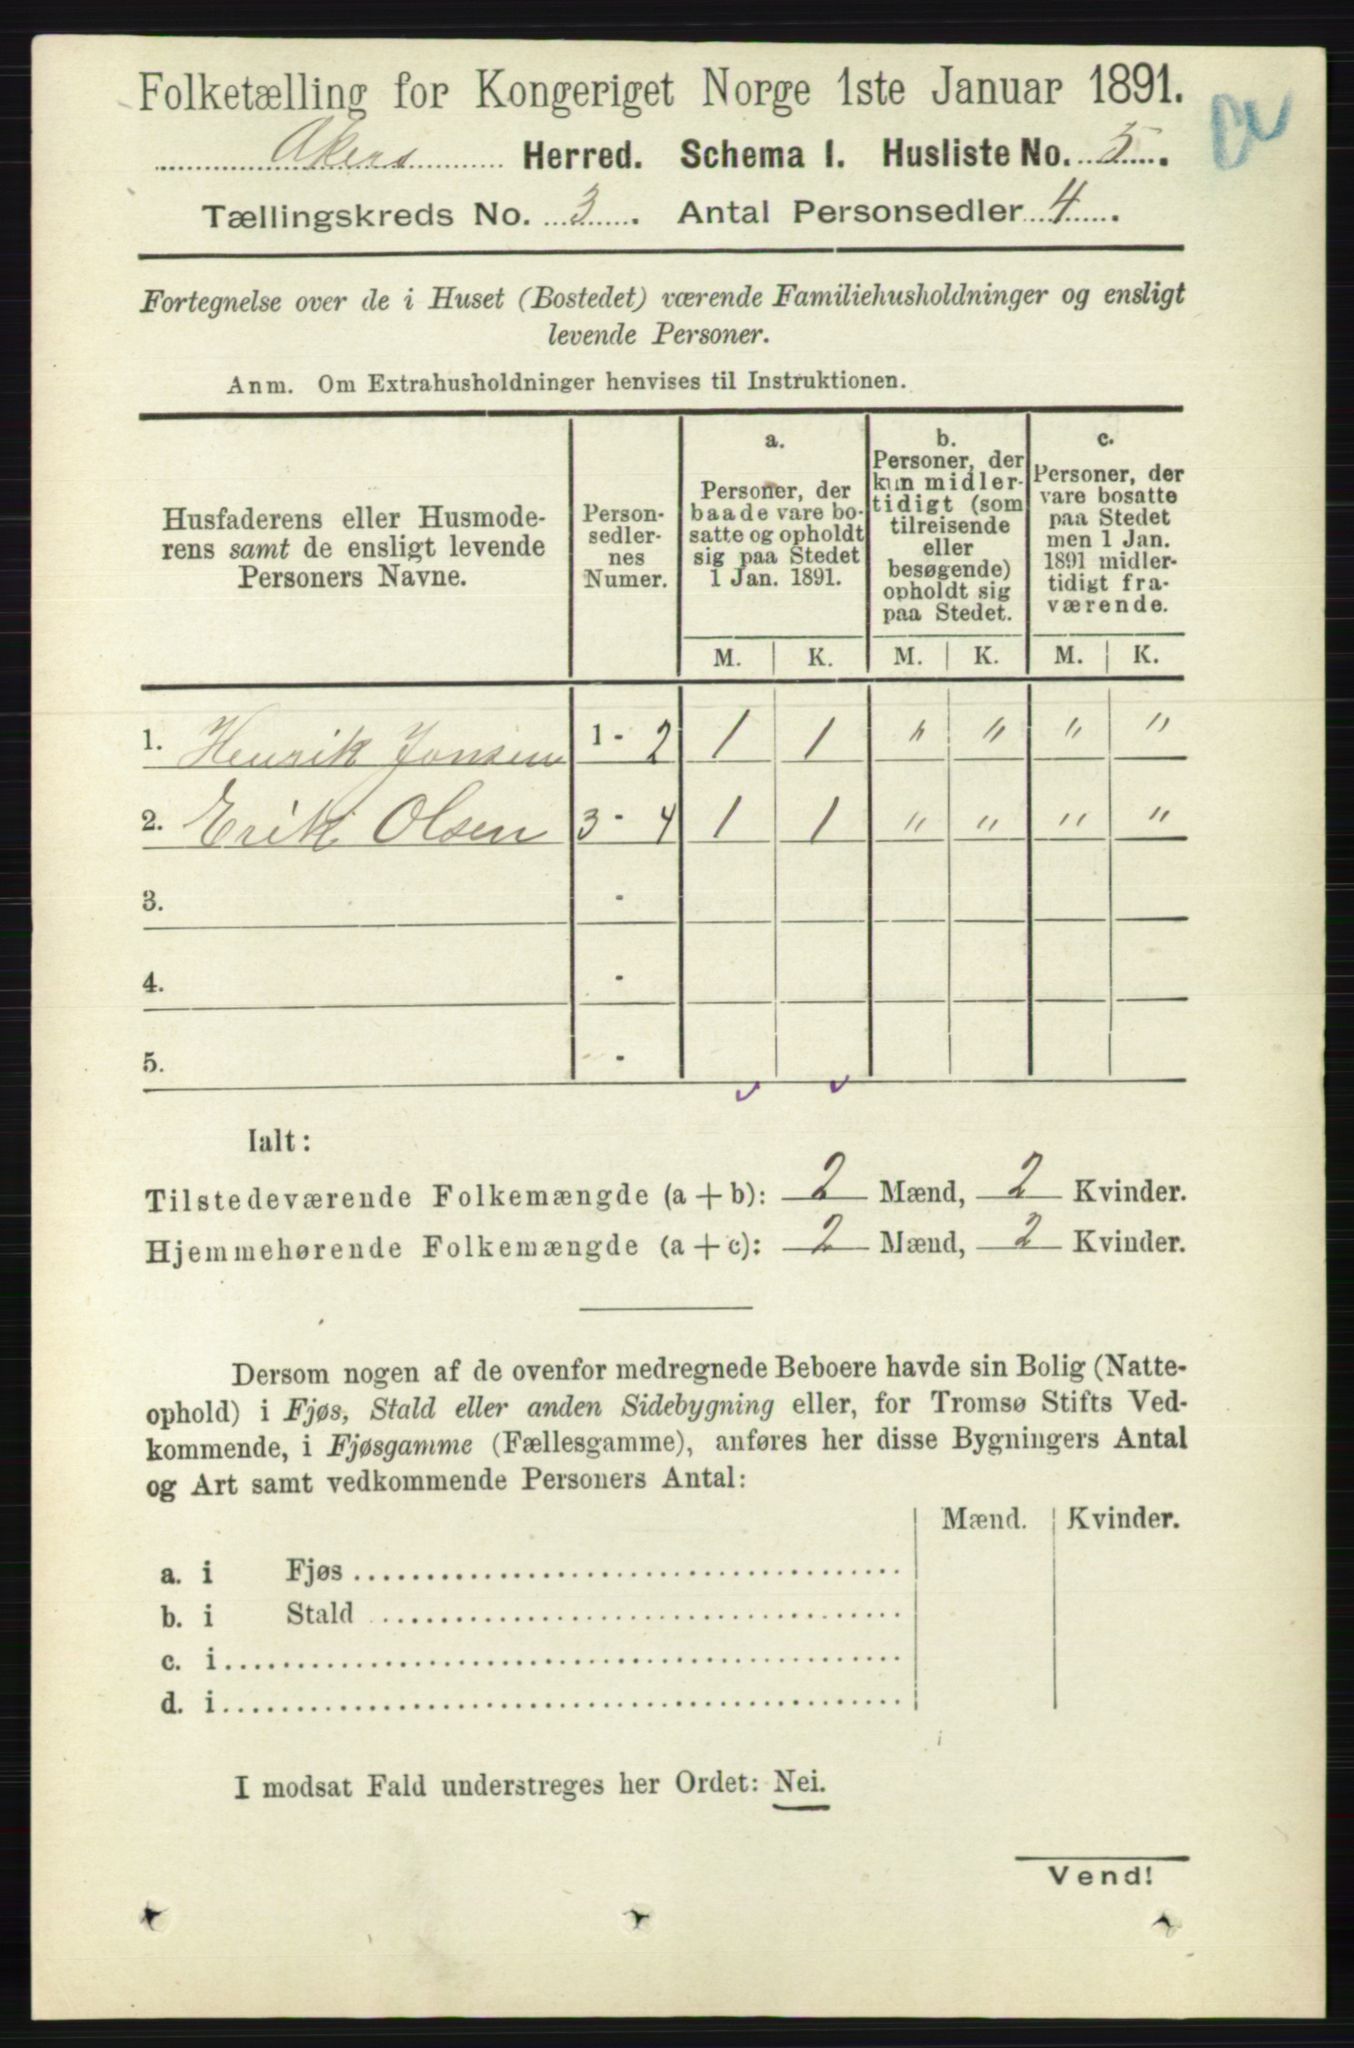 Folketælling for Kongeriget Norge 1ste Januar 1891.
Akers Herred. Schema I. Husliste No. 5.
Tællingskreds No. 3. Antal Personsedler 4.
Fortegnelse over de i Huset (Bostedet) værende Familiehusholdninger og ensligt
levende Personer.
Anm. Om Extrahusholdninger henvises til Instruktionen.
Husfaderens eller Husmode-
rens samt de ensligt levende
Personers Navne.
Person-
sedler-
nes
Numer.
a.
Personer, der
baade vare bo-
satte og opholdt
sig paa Stedet
1 Jan. 1891.
b.
Personer, der
kun midler-
tidigt (som
tilreisende
eller
besøgende)
opholdt sig
paa Stedet.
c.
Personer, der
vare bosatte
paa Stedet
men 1 Jan.
1891 midler-
tidigt fra-
værende.
M. K. M. K. M. K.
1. Henrik Jonsen 1 - 2 1 1 " " " "
2. Erik Olsen 3 - 4 1 1 " " " "
3. -
4. -
5. -
Ialt:
Tilstedeværende Folkemængde (a + b): 2 Mænd, 2 Kvinder.
Hjemmehørende Folkemængde (a + c): 2 Mænd, 2 Kvinder.
Dersom nogen af de ovenfor medregnede Beboere havde sin Bolig (Natte-
ophold) i Fjøs, Stald eller anden Sidebygning eller, for Tromsø Stifts Ved-
kommende, i Fjøsgamme (Fællesgamme), anføres her disse Bygningers Antal
og Art samt vedkommende Personers Antal:
Mænd. Kvinder.
a. i Fjøs
b. i Stald
c. i
d. i
I modsat Fald understreges her Ordet: Nei.
Vend!